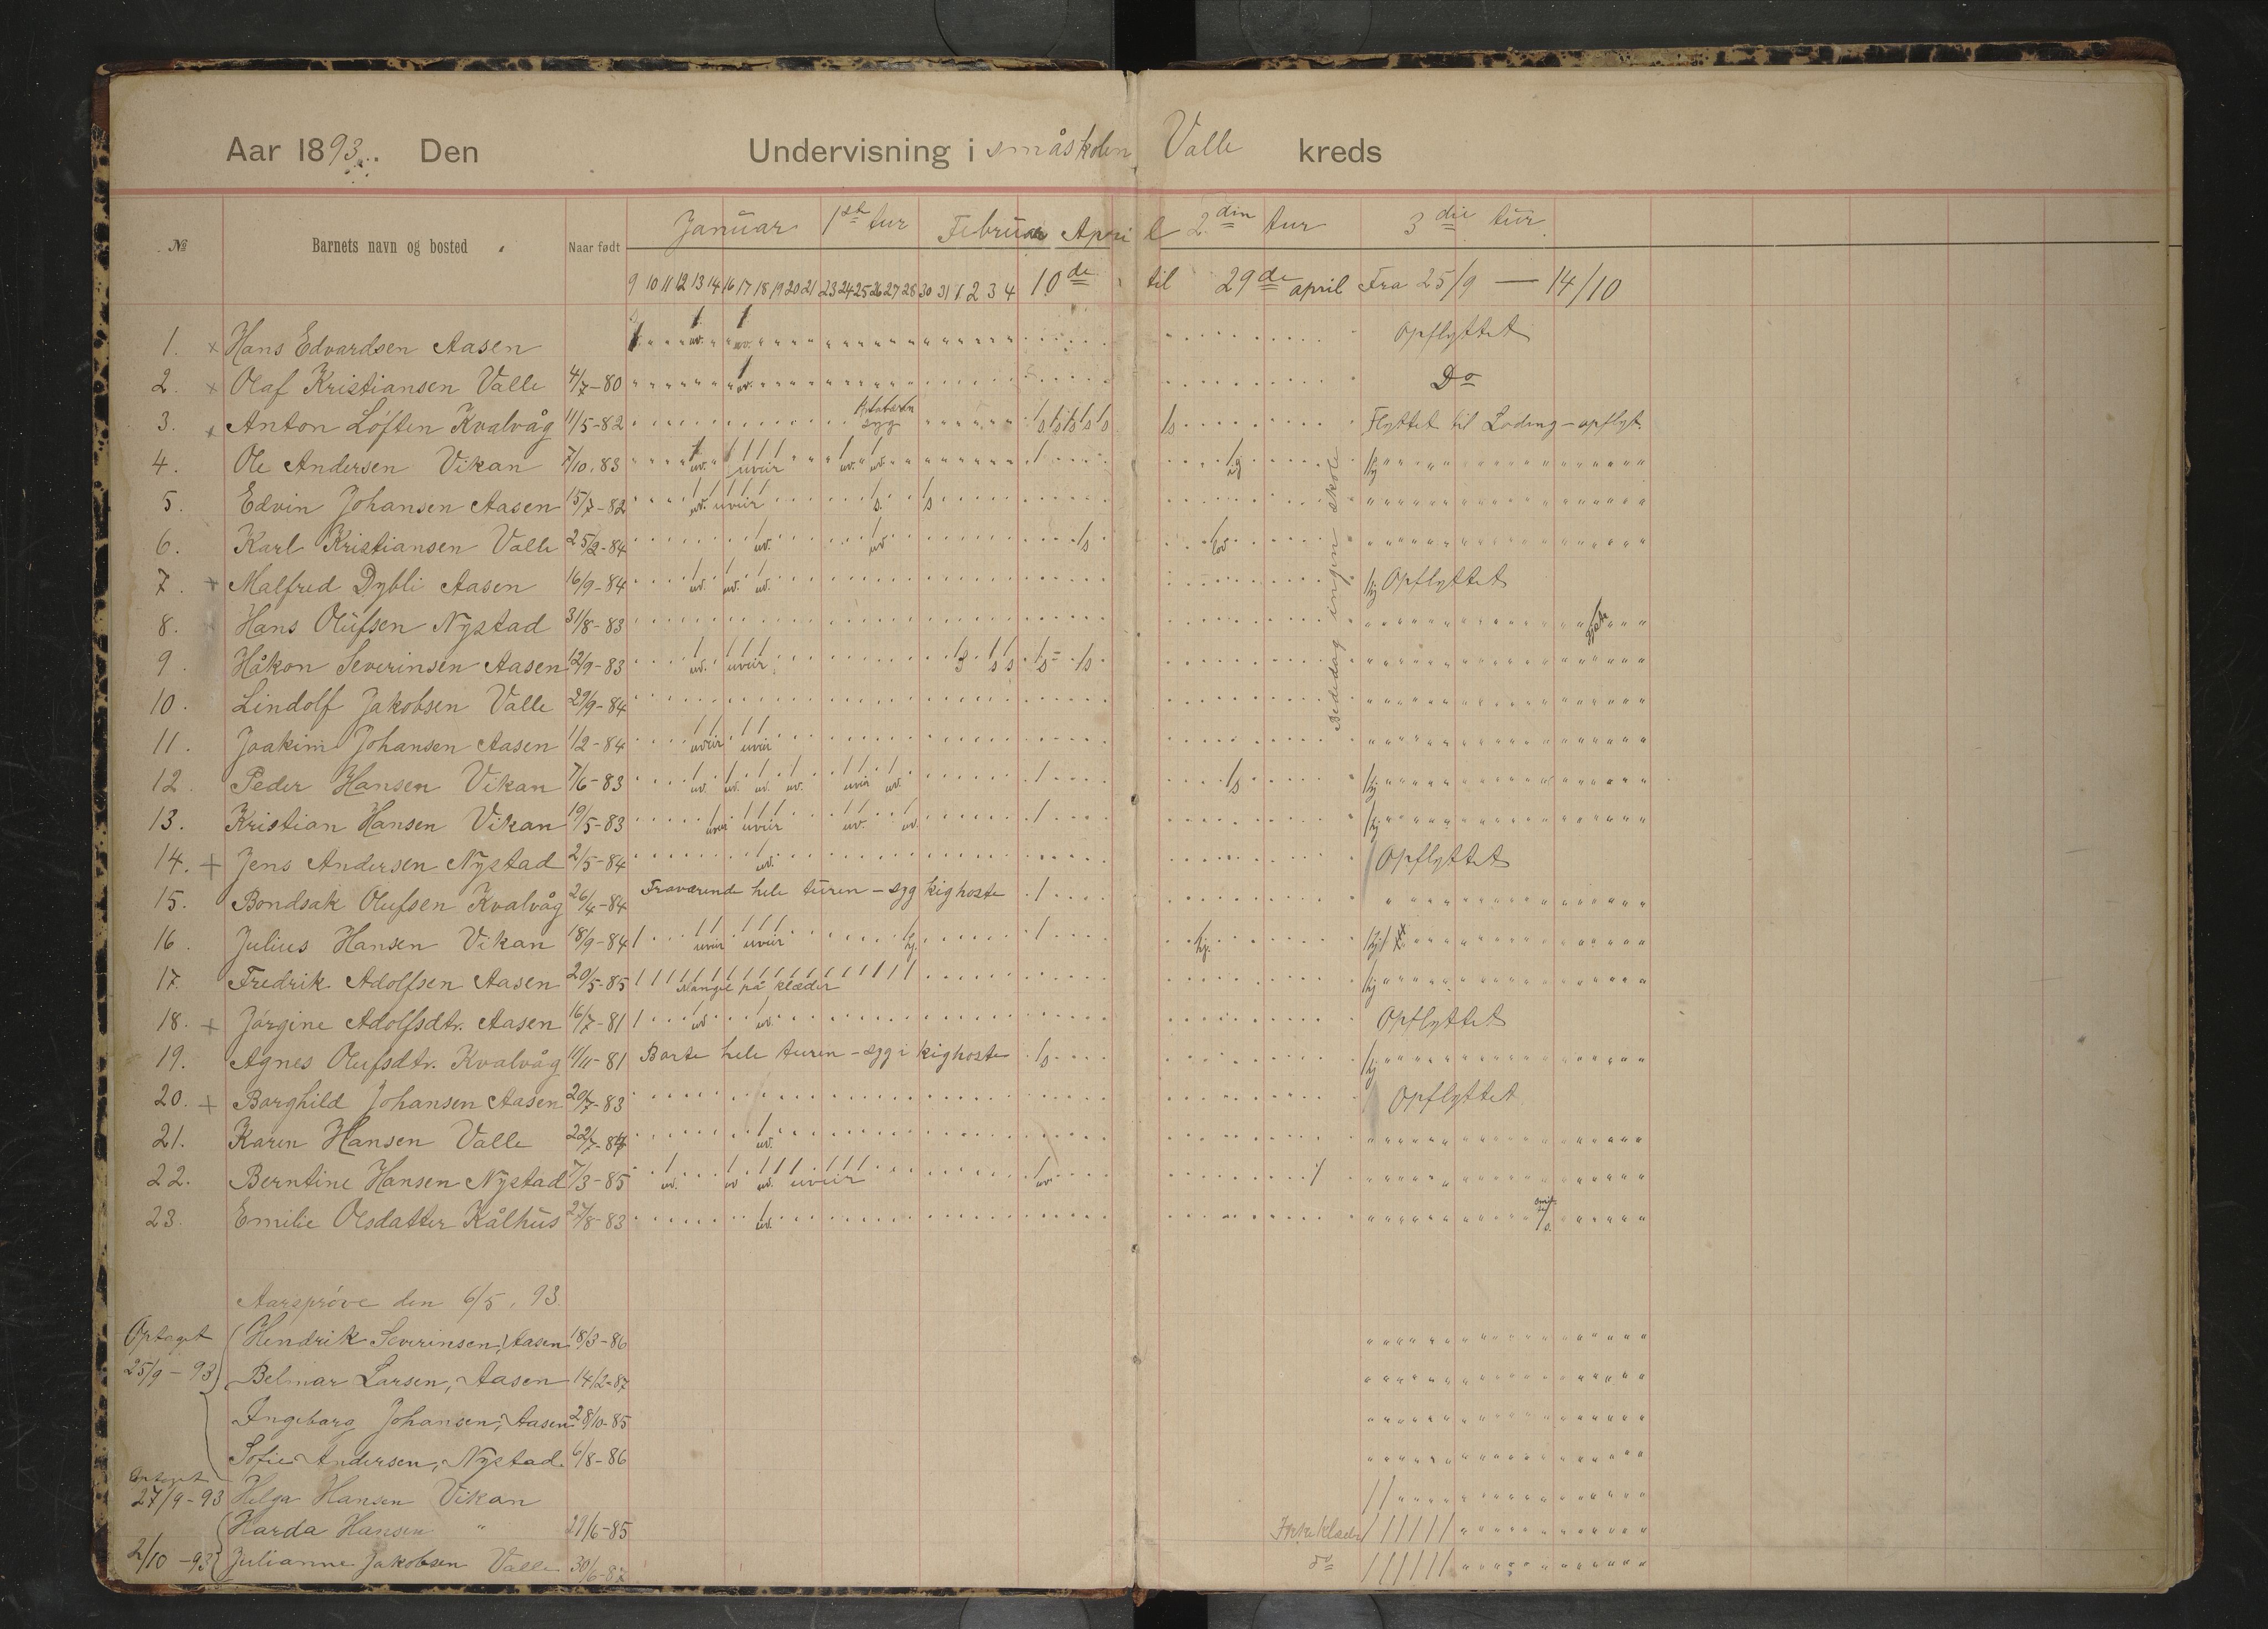 Aar 1893. Den Undervisning i småskolen Valle kreds
Januar 1ste tur Februar April 2den tur 3die tur
№ Barnets navn og bosted Naar født
9 10 11 12 13 14 16 17 18 19 20 21 23 24 25 26 27 28 30 31 1 2 3 4 10de til 29de april Fra 25/9 — 14/10
1. x Hans Edvardsen Aasen uv. uv. Opflyttet
2. x Olaf Kristiansen Valle 4/7-80 uv. Do
3. x Anton Löften Kvalvåg 11/5-82 syg s s s s s s Flyttet til Loding - opflyt.
4. Ole Andersen Vikan 7/10.83 uv. uveir uv. uv. hj
5. Edvin Johansen Aasen 15/7-82 uv. uveir s. s
6. Karl Kristiansen Valle 25/2-84 uv. uv. s
7. + Malfred Dybli Aasen 16/9-84 uv. uv. uv. hj Opflyttet
8. Hans Olüfsen Nystad 31/8-83
9. Håkon Severinsen Aasen 12/9-83 uv. uveir s s s s s
10. Lindolf Jakobsen Valle 29/9-84
11. Joakim Johansen Aasen 1/2-84 uveir uveir
12. Peder Hansen Vikan 7/6-83 uv. uv. uv. uv. uveir uv. s hj
13. Kristian Hansen Vikan 19/5-83 uveir uveir uv. uv. hj
14. + Jens Andersen Nystad 2/5-84 uv. Opflyttet
15. Bondsak Olufsen Kvalvåg 26/4-84 Fraværende hele turen - syg kighoste
16. Julius Hansen Vikan 18/9-84 uveir uveir hj. hj. hj
17. Fredrik Adolfsen Aasen 20/5-85 Mangel på klæder hj
18. + Jörgine Adolfsdtr. Aasen 16/7-81 uv. uv. Opflyttet
19. Agnes Olufsdtr. Kvalvåg 11/11-81 Borte hele turen - syg i kighoste s hj
20. + Borghild Johansen Aasen 20/7-83 Opflyttet
21. Karen Hansen Valle 22/7-84 uv.
22. Berntine Hansen Nystad 7/3-85 uv. uv uv. uveir uv.
23. Emilie Olsdatter Kålhus 27/8-83 uv. s.
Bededag ingen skole
Aarspröve den 6/5. 93.
Optaget Hendrik Severinsen, Aasen 18/3-86
25/9 - 93 Belmar Larsen, Aasen 14/2-87
Ingeborg Johansen, Aasen 28/10-85
Sofie Andersen, Nystad 6/8-86
Optaget
27/9-93 Helga Hansen Vikan
Harda Hansen " 29/6-85
2/10 -93 Julianne Jakobsen Valle 30/6-87 do